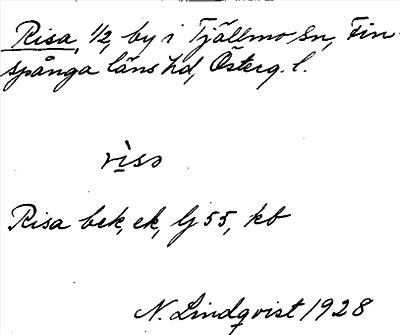 Risa, 1/2, by i Tjällmo sn, Fin-
spånga läns hd, Österg. l.
viso
Risa bek, ek, lj 55, kb
N. Lindqvist 1928